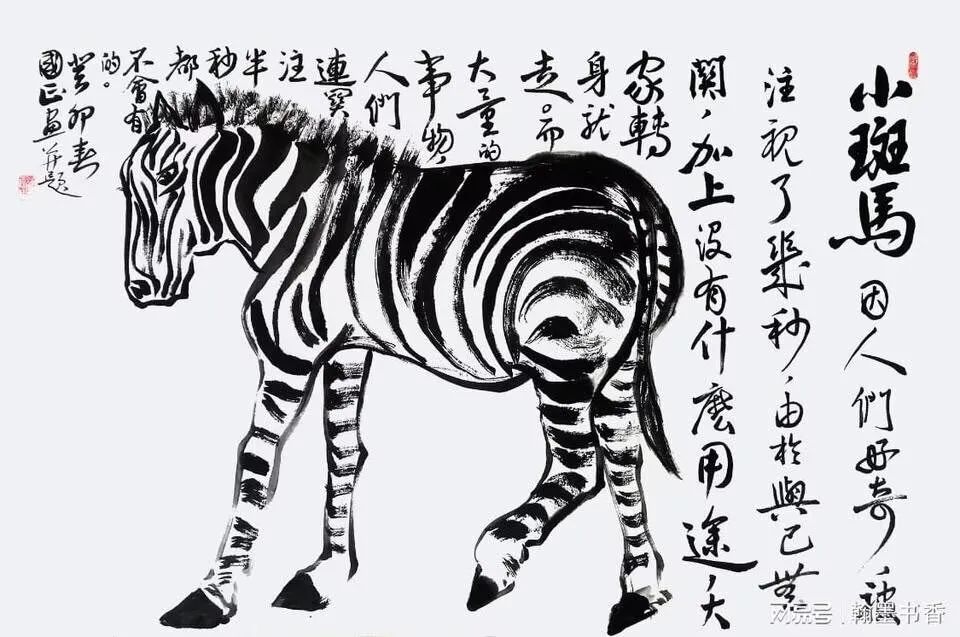 小斑馬 因人們好奇,被
注視了幾秒,由於與己無
関,加上没有什麼用途,大
家轉
身就
走。而
大量的
事物,
人們
連関
注
半
秒
都
不會有
的。
癸卯春
國正畫并題
网易号 | 翰墨书香